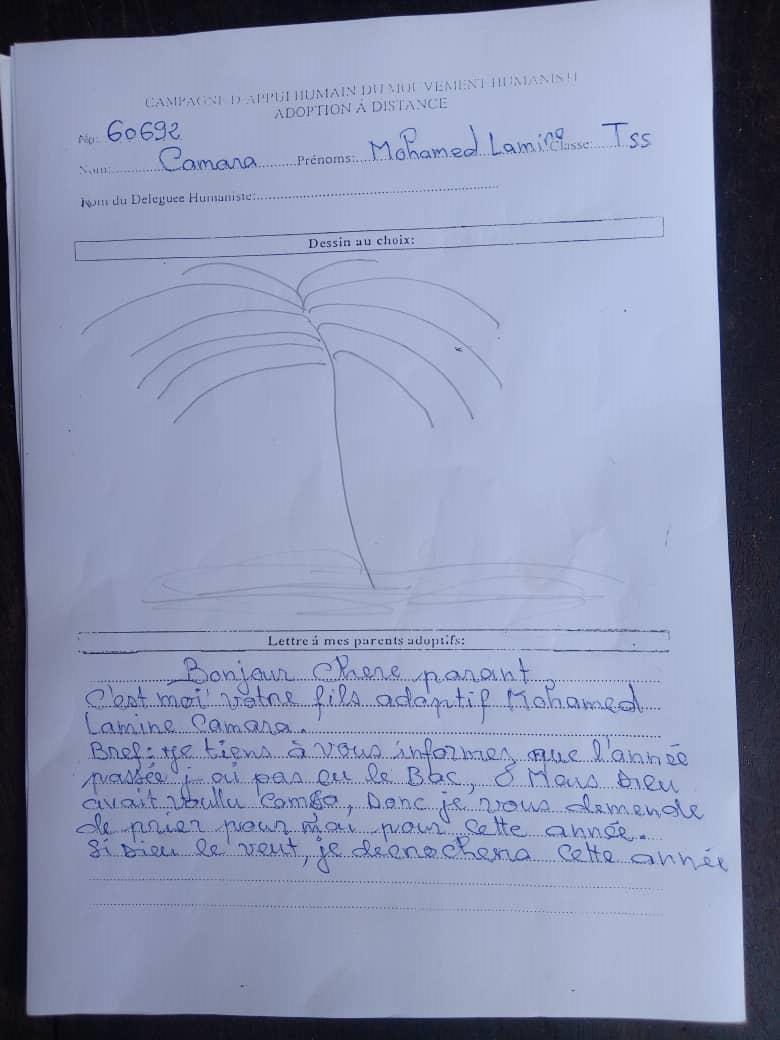 CAMPAGNE D'APPUI HUMAIN DU MOUVEMENT HUMANISTE
ADOPTION Á DISTANCE
No: 60692
Nom: Camara Prénoms: Mohamed Lamine Classe: Tss
Nom du Deleguee Humaniste:
Dessin au choix:
Lettre á mes parents adoptifs:
Bonjour Chere parant,
C'est moi votre fils adoptif Mohamed
Lamine Camara.
Bref: je tiens à vous informer que l'année
passée j-ai pas eu le Bac, Mais Dieu
avait voullu comsa, Donc je vous demende
de prier pour moi pour cette année.
Si Dieu le veut, je decrochera cette année